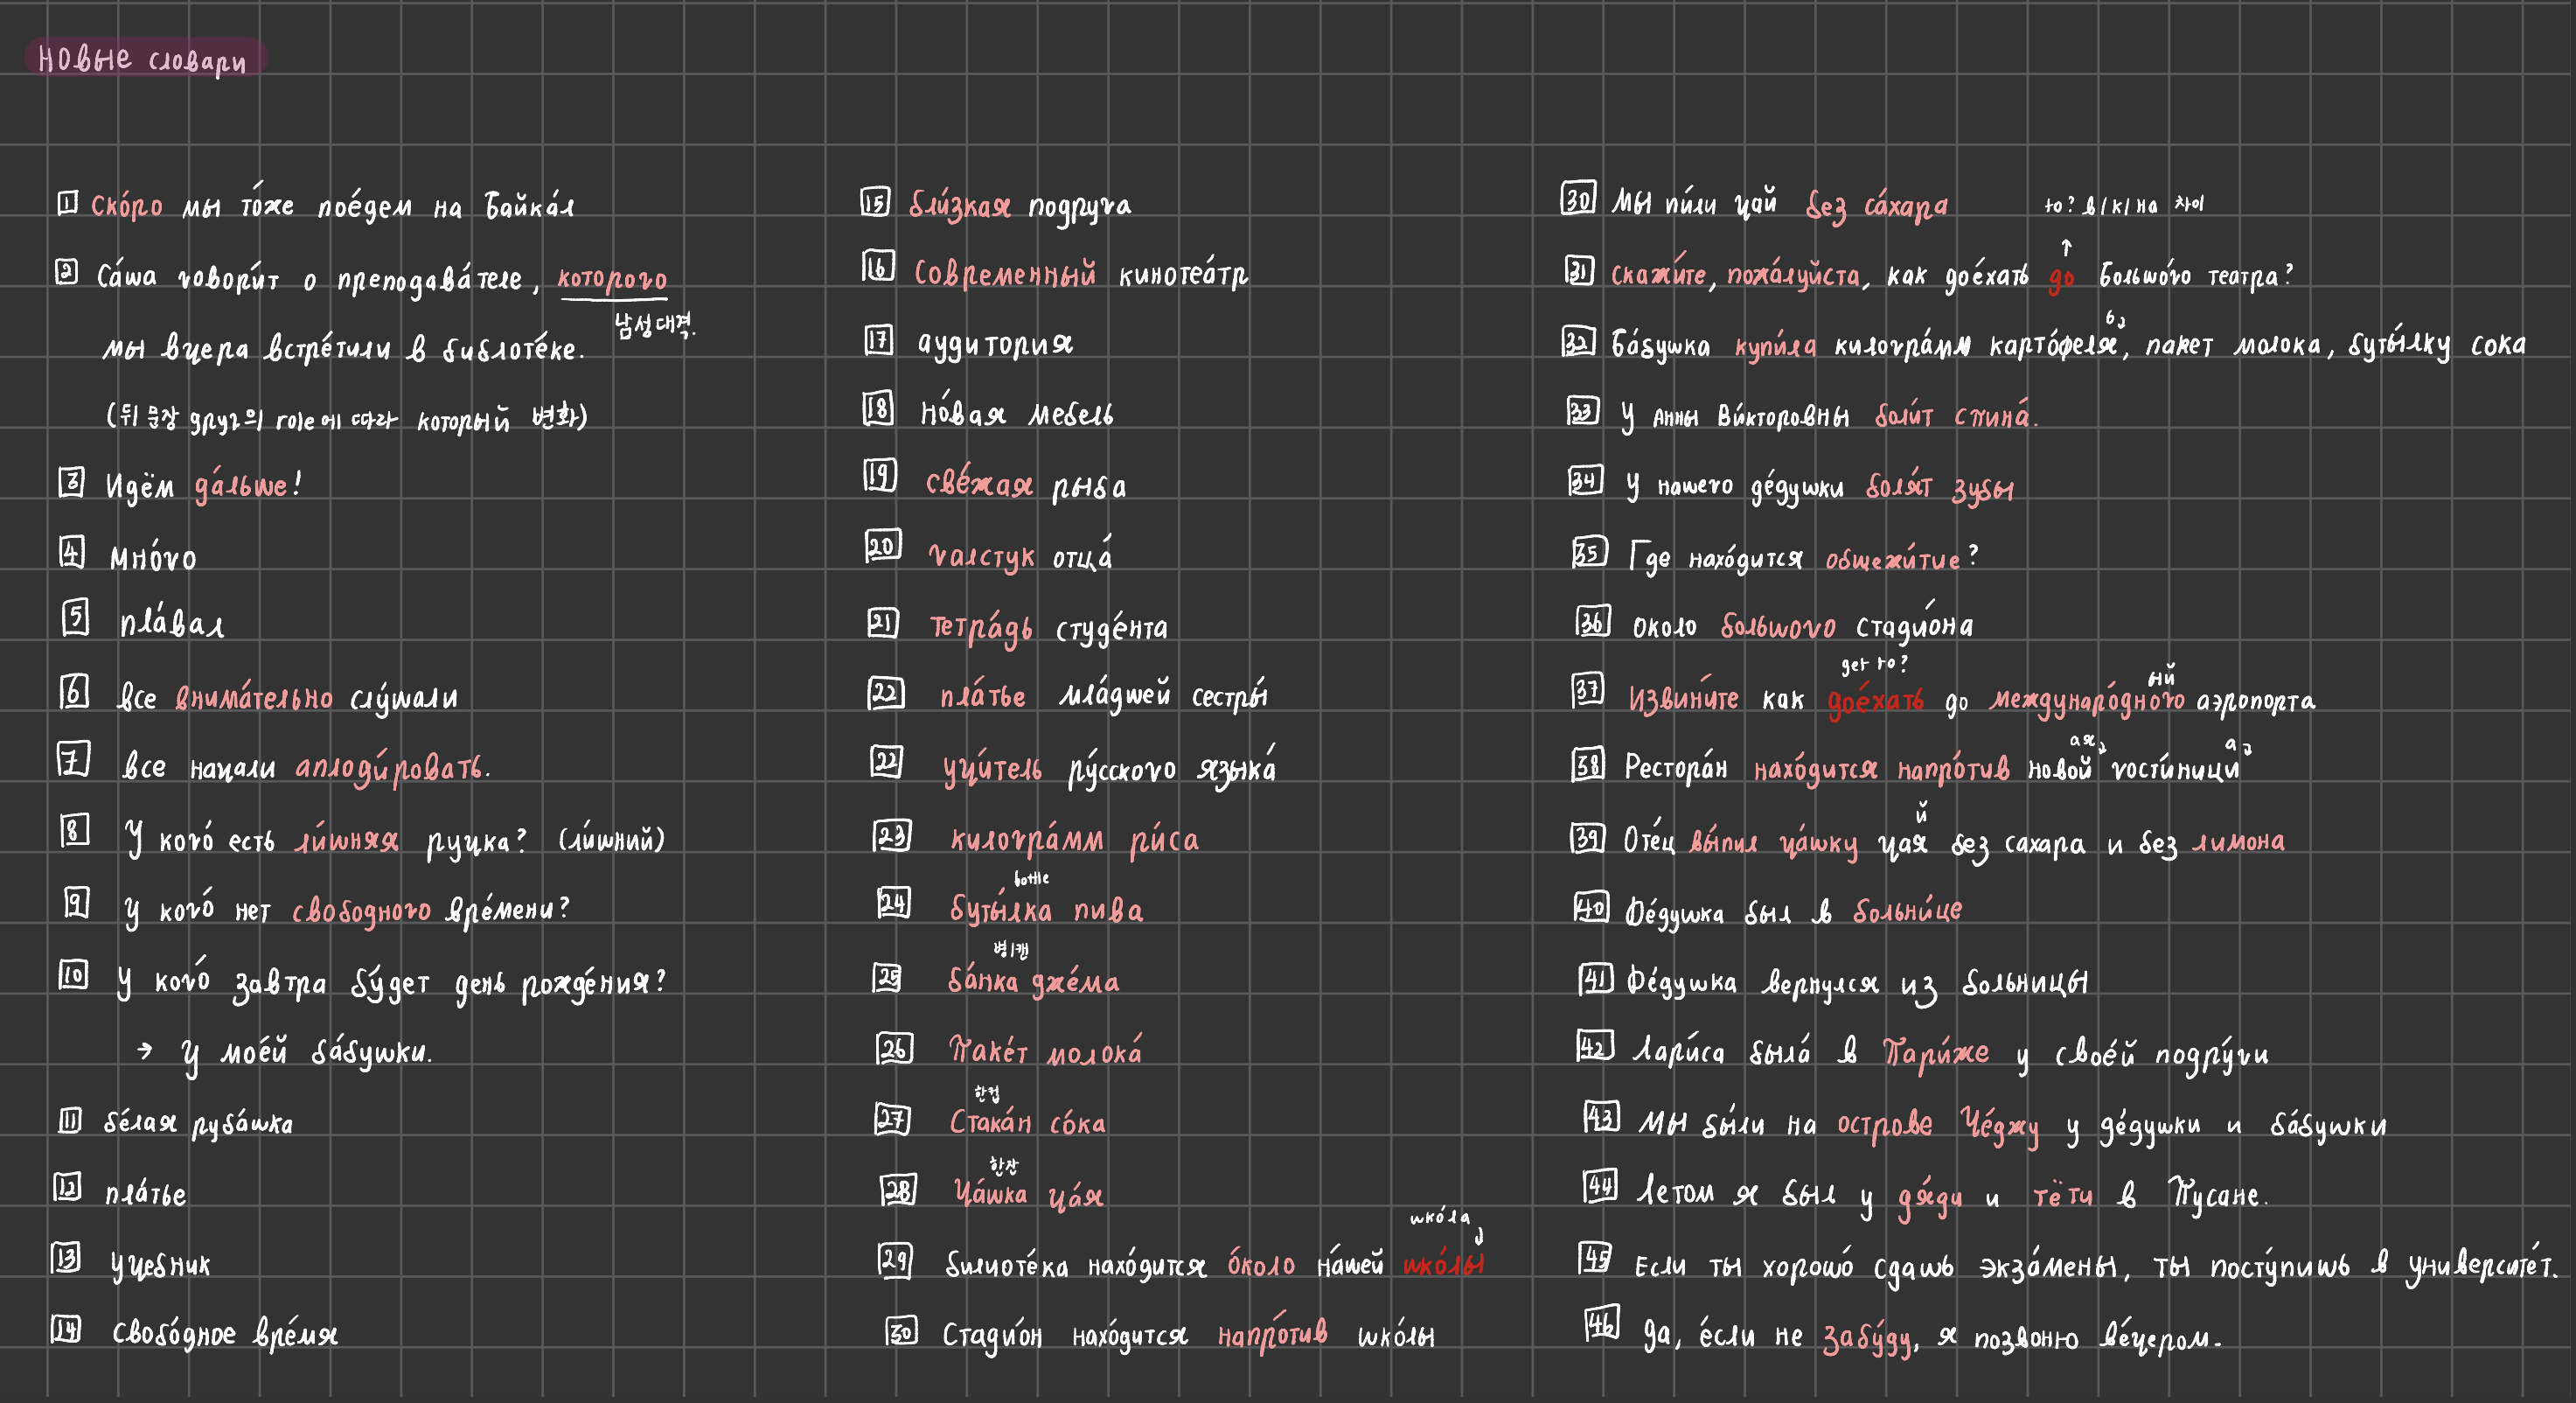 Новые словари
1 Ско́ро мы то́же пое́дем на Байка́л
2 Са́ша говори́т о преподава́теле, которого
남성대격.
мы вчера встре́тили в библоте́ке.
(뒤 문장 друг의 role에 따라 который 변화)
3 Идём да́льше!
4 мно́го
5 пла́вал
6 все внима́тельно слу́шали
7 все начали аплоди́ровать.
8 У кого́ есть ли́шняя ручка? (ли́шний)
9 У кого́ нет свободного вре́мени?
10 У кого́ завтра бу́дет день рожде́ния?
→ У мое́й ба́бушки.
11 бе́лая руба́шка
12 пла́тье
13 учебник
14 свобо́дное вре́мя
15 бли́зкая подруга
16 Современный кинотеа́тр
17 аудитория
18 но́вая мебель
19 све́жая рыба
20 галстук отца́
21 тетра́дь студе́нта
22 пла́тье мла́дшей сестры́
22 учи́тель ру́сского языка́
23 килогра́мм ри́са
bottle
24 буты́лка пива
병/캔
25 ба́нка дже́ма
26 Паке́т молока́
한컵
27 Стака́н со́ка
한잔
28 Ча́шка ча́я
шко́ла
29 билиоте́ка нахо́дится о́коло на́шей шко́лы
30 Стадио́н нахо́дится напро́тив шко́лы
30 Мы пи́ли чай без са́хара
to? в/к/на 차이
↑
31 скажи́те, пожа́луйста, как дое́хать до Большо́го театра?
ь
32 Ба́бушка купи́ла килогра́мм карто́феля, пакет молока, буты́лку сока
33 У Анны Ви́кторовны боли́т спина́.
34 У нашего де́душки боля́т зубы
35 Где нахо́дится общежи́тие?
36 около большого стадио́на
get to?
ый
37 Извини́те как дое́хать до междунаро́дного аэропорта
ая а
38 Рестора́н нахо́дится напро́тив новой гости́ницы
й
39 Оте́ц вы́пил ча́шку чая без сахара и без лимона
40 Де́душка был в больни́це
41 Де́душка вернулся из больницы
42 Лари́са была́ в Пари́же у свое́й подру́ги
43 Мы бы́ли на острове Че́джу у де́душки и ба́бушки
44 Летом я был у дя́ди и тёти в Пусане.
45 Если ты хорошо́ сдашь экза́мены, ты посту́пишь в университе́т.
46 да, е́сли не забу́ду, я позвоню ве́чером.